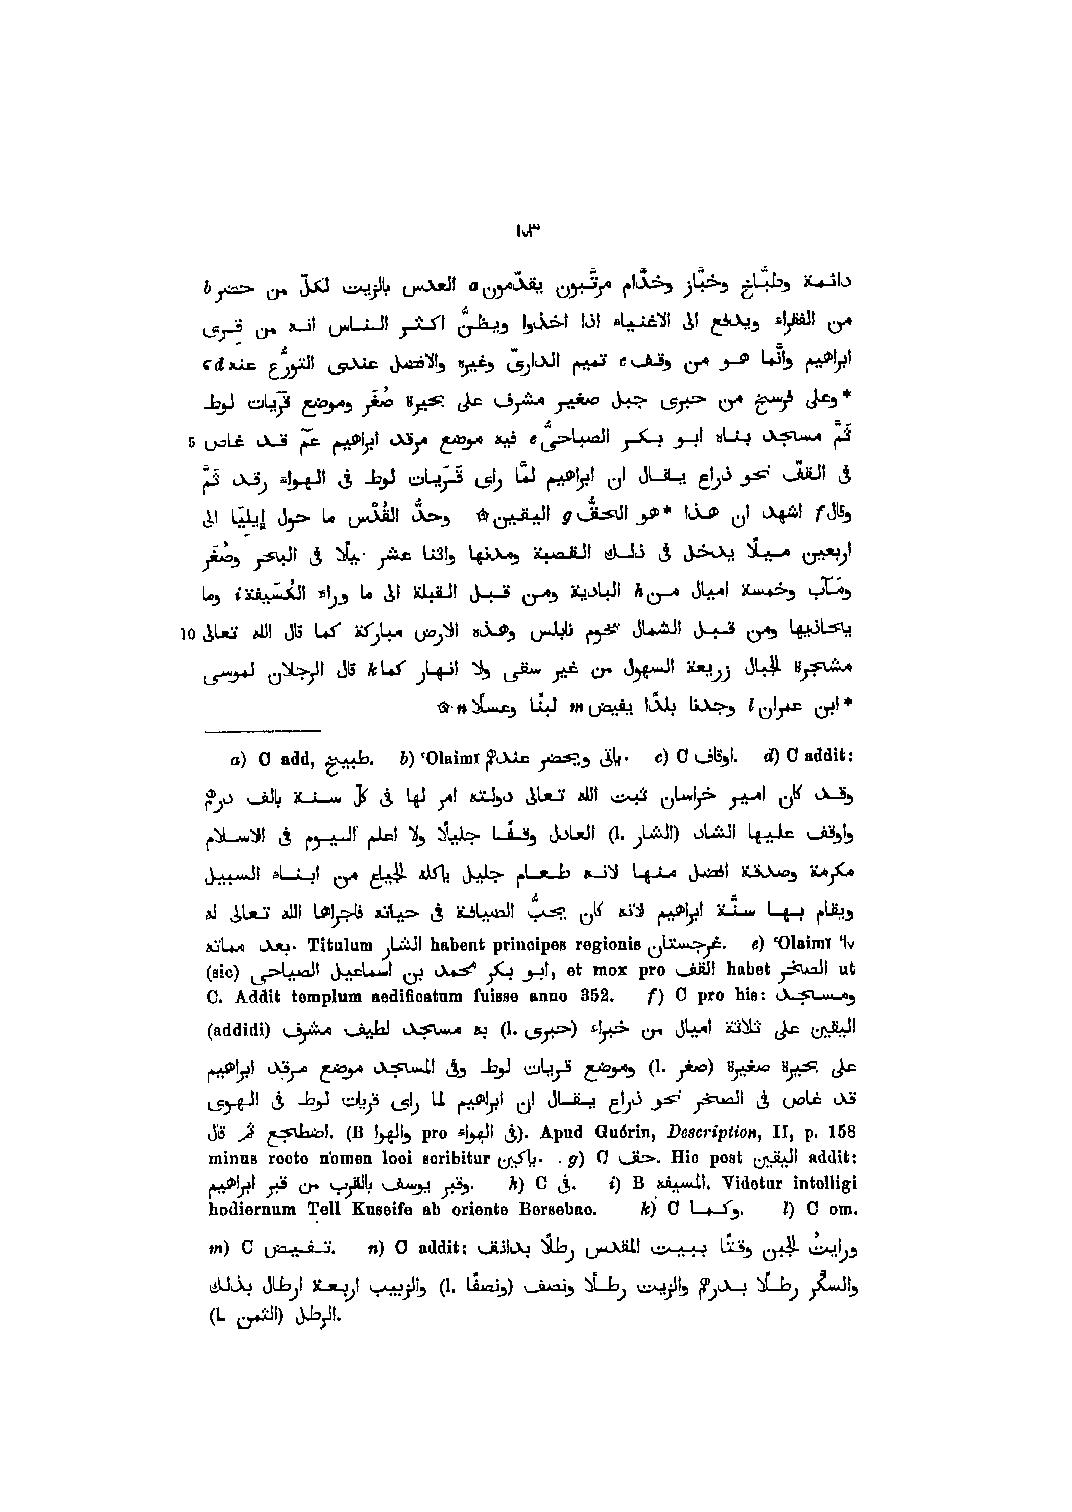 ١٧٣
دائمة وطبّاخ وخبّاز وخدّام مرتّبون يقدّمون a العدس بالزيت لكلّ من حضر b
من الفقراء ويدفع الى الاغنياء اذا اخذوا ويظنّ اكثر الناس انه من قرى
ابراهيم وانّما هو من وقف c تميم الدارىّ وغيره والافضل عندى التورّع عنه d ء
*وعلى فرسخ من حبرى جبل صغير مشرف على بحيرة صُغَر وموضع قريات لوط
ثَمَّ مسجد بناه ابو بكر الصباحىُّ e فيه موضع مرقد ابراهيم عم قد غاص 5
فى القفّ نحو ذراع يقال ان ابراهيم لمّا راى قَرَيات لوط فى الهواء رقد ثَمَّ
وقال f اشهد ان هذا *هو الحقُّ g اليقين ۞ وحدُّ القُدْس ما حول إيليَا الى
اربعين ميلًا يدخل فى ذلك القصبة ومدنها واثنا عشر ميلًا فى البحر وصُغَر
ومَآب وخمسة اميال من h البادية ومن قبل القبلة الى ما وراء الكُسَيفة i وما
يحاذيها ومن قبل الشمال تخوم نابلس وهذه الارض مباركة كما قال الله تعالى 10
مشجرة الجبال زريعة السهول من غير سقى ولا انهار كما k قال الرجلان لموسى
*ابن عمران l وجدنا بلدًا يفيض m لبنًا وعسلًا n ۞
a) C add. طبيخ. b) ‘Olaimī ياتى ويحضر عندهم. c) C اوقاف. d) C addit:
وقد كان امير خراسان ثبت الله تعالى دولته امر لها فى كل سنة بالف درهم
واوقف عليها الشاد (l. الشار) العادل وقفًا جليلًا ولا اعلم اليوم فى الاسلام
مكرمة وصدقة افضل منها لانه طعام جليل ياكله الجياع من ابناء السبيل
ويقام بها سنّة ابراهيم لانه كان يحبُّ الضيافة فى حياته فاجراها الله تعالى له
بعد مماته. Titulum الشار habent principes regionis غرجستان. e) ‘Olaimī ٦٧
(sic) ابو بكر محمد بن اسماعيل الصباحى, et mox pro القف habet الصخر ut
C. Addit templum aedificatum fuisse anno 352. f) C pro his: ومسجد
اليقين على ثلاثة اميال من خبراء (حبرى l.) به مسجد لطيف مشرف (addidi)
على بحيرة صغيرة (صغر l.) وموضع قريات لوط وفى المسجد موضع مرقد ابراهيم
قد غاص فى الصخر نحو ذراع يقال ان ابراهيم لما راى قريات لوط فى الهوى
اضطجع ثم قال. (B والهوا pro فى الهواء). Apud Guérin, Description, II, p. 158
minus recte nomen loci scribitur ياكين. g) C حقف. Hic post اليقين addit:
وقبر يوسف بالقرب من قبر ابراهيم. h) C فى. i) B السيفه. Videtur intelligi
hodiernum Tell Kuseife ab oriente Bersebae. k) C وكما. l) C om.
m) C تفيض. n) C addit: ورايتُ الجبن وقتًا ببيت المقدس رطلًا بدانق
والسكّر رطلًا بدرهم والزيت رطلًا ونصف (ونصفًا l.) والزبيب اربعة ارطال بذلك
الرطل (الثمن L).